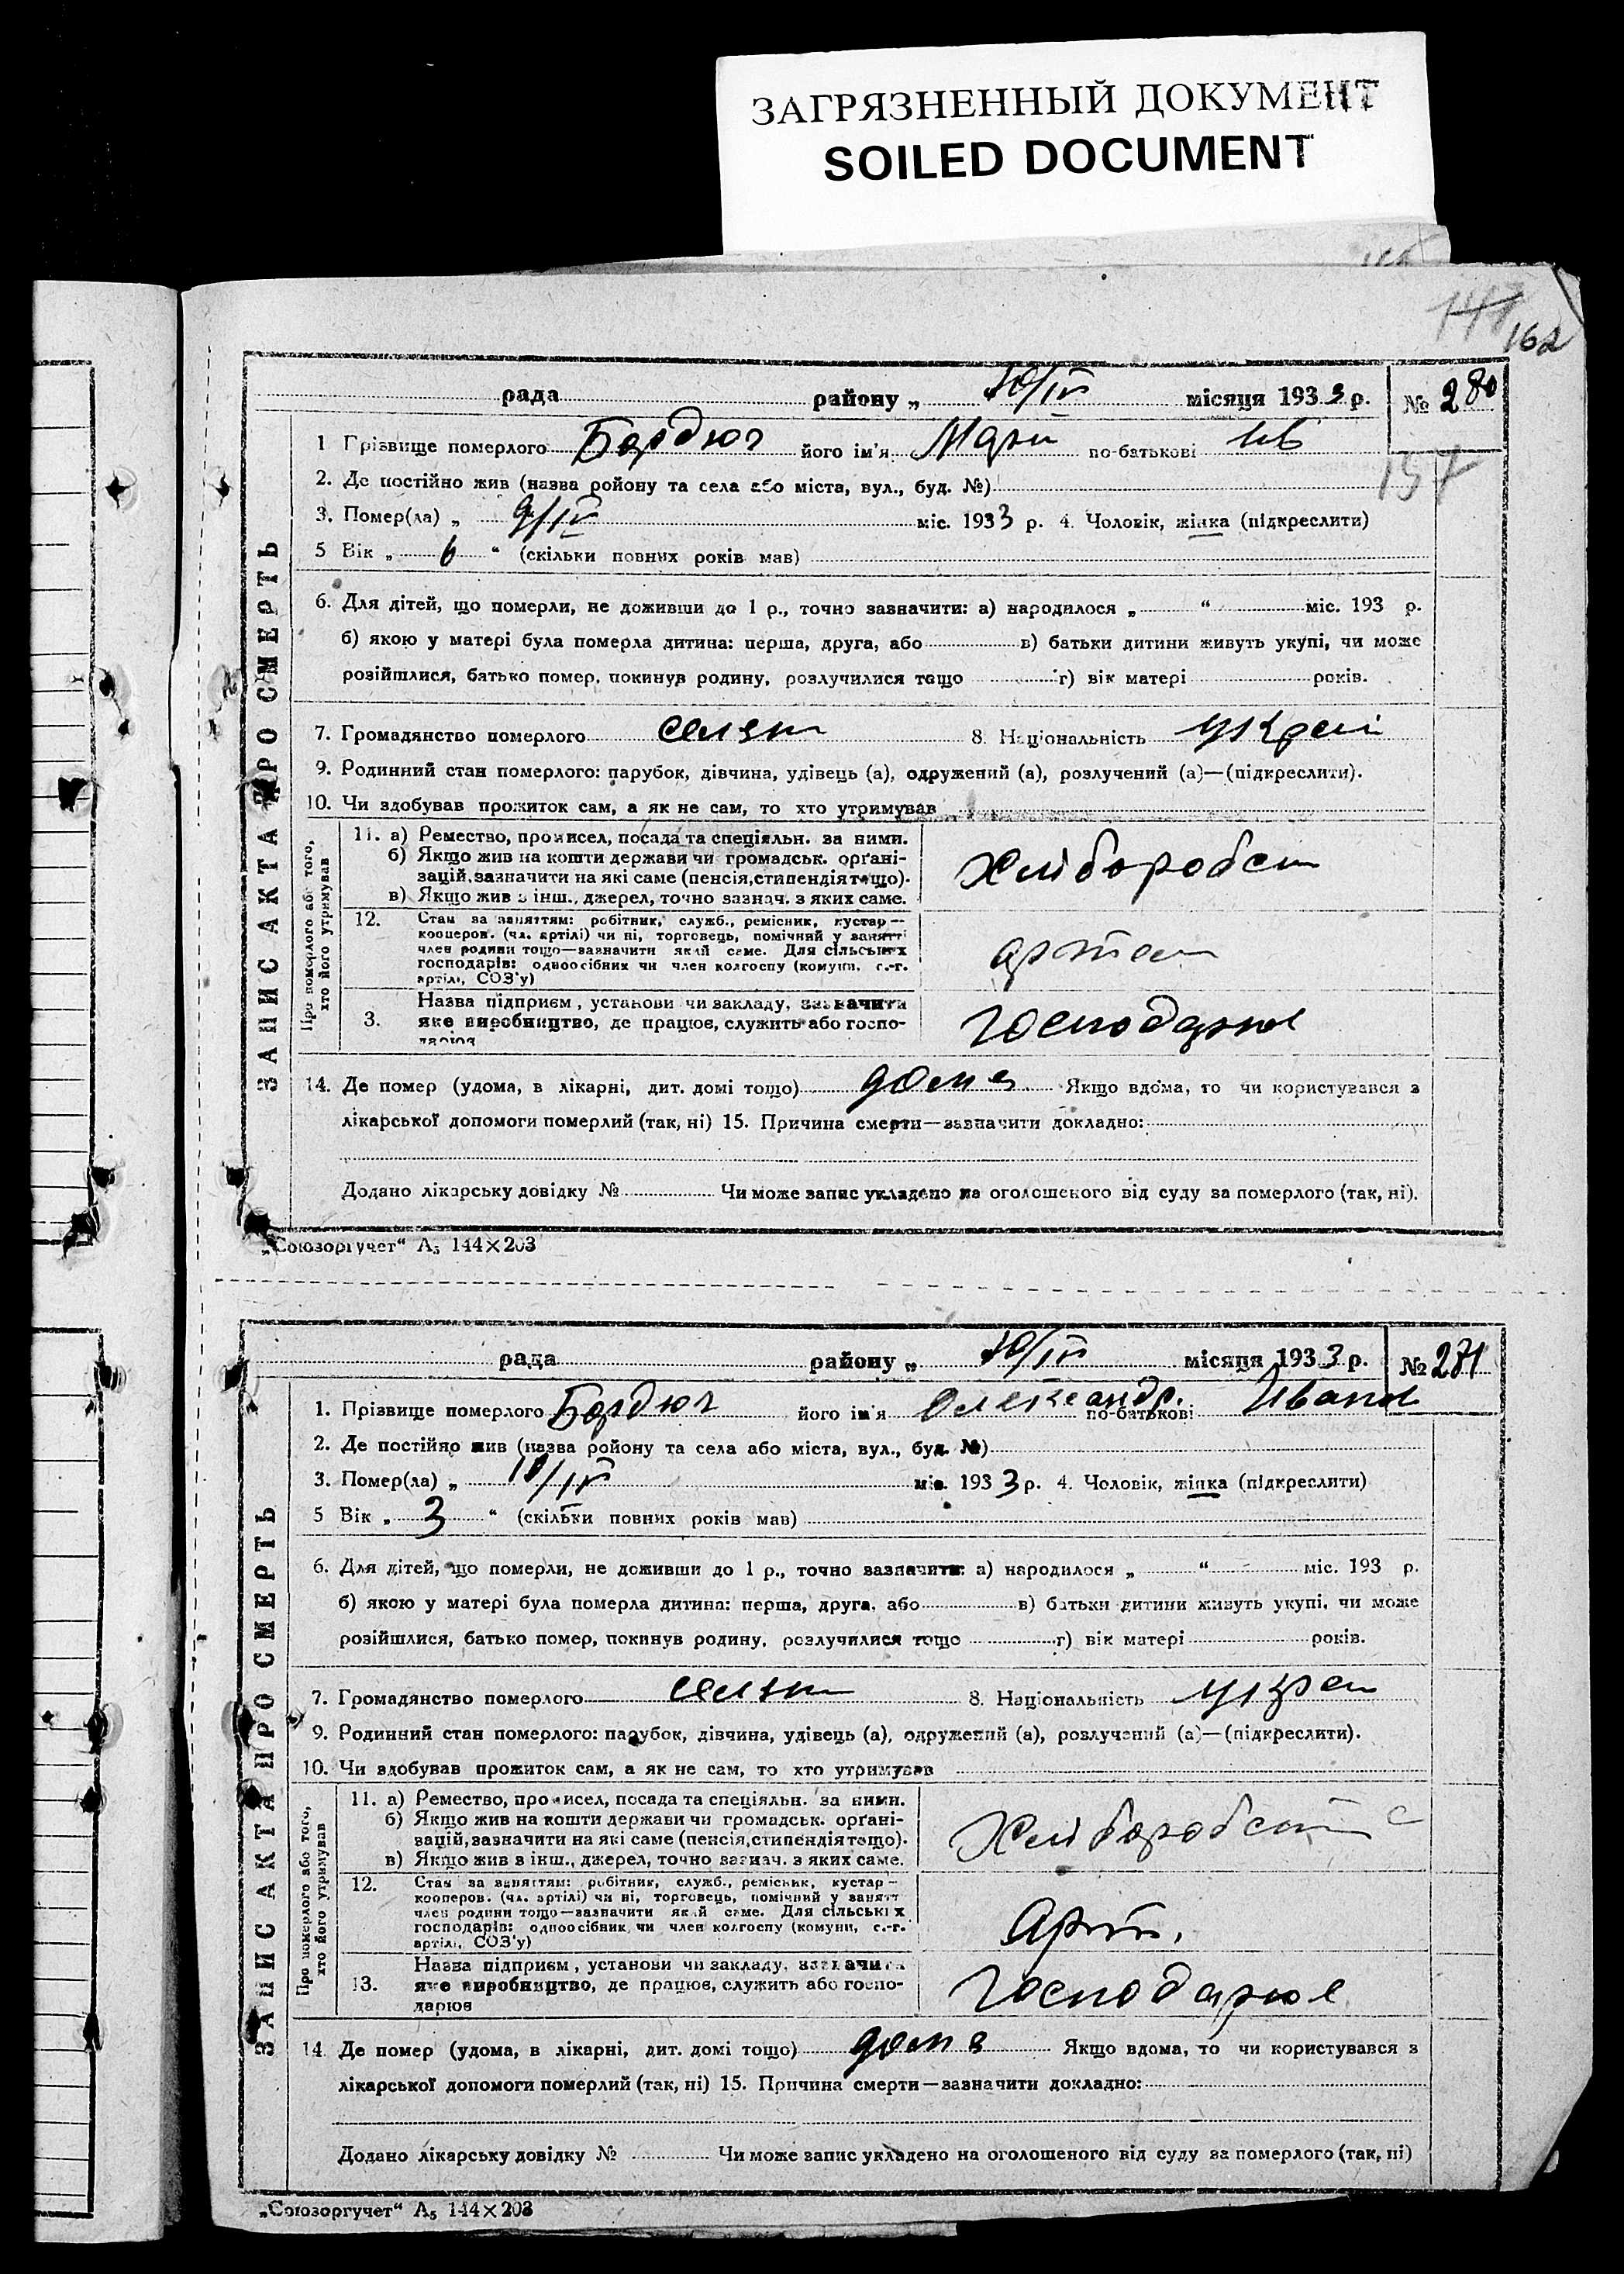 ЗАГРЯЗНЕННЫЙ ДОКУМЕНТ
SOILED DOCUMENT
162
рада району „ 10/IV місяця 1933 р. № 280
1 Прізвище померлого Бардюг його ім'я Мари по-батькові Ив
157
2. Де постійно жив (назва ройону та села або міста, вул., буд. №)
3. Помер(ла) „ 9/IV міс. 1933 р. 4. Чоловік, жінка (підкреслити)
5 Вік „ 6 “ (скільки повних років мав)
6. Для дітей, що померли, не доживши до 1 р., точно зазначити: а) народилося „ “ міс. 193 р.
б) якою у матері була померла дитина: перша, друга, або в) батьки дитини живуть укупі, чи може
розійшлися, батько помер, покинув родину, розлучилися тощо г) вік матері років.
7. Громадянство померлого селян 8. Національність украї
9. Родинний стан померлого: парубок, дівчина, удівець (а), одружений (а), розлучений (а)—(підкреслити).
10. Чи здобував прожиток сам, а як не сам, то хто утримував
ЗАПИС АКТА ПРО СМЕРТЬ
Про померлого або того, хто його утримував
11. а) Ремество, промисел, посада та спеціяльн. за ними.
б) Якщо жив на кошти держави чи громадськ. орґані-
зацій, зазначити на які саме (пенсія, стипендія тощо).
в) Якщо жив з інш., джерел, точно зазнач. з яких саме.
Хліборобст
12. Стан за заняттям: робітник, служб., ремісник, кустар—
кооперов. (чл. артілі) чи ні, торговець, помічний у занятті
член родини тощо—зазначити який саме. Для сільських
господарів: одноосібник чи член колгоспу (комуни, с.-г.
артілі, СОЗ'у)
артел
3. Назва підприєм, установи чи закладу, зазначити
яке виробництво, де працює, служить або госпо-
дарює
Господарює
14. Де помер (удома, в лікарні, дит. домі тощо) дома Якщо вдома, то чи користувався з
лікарської допомоги померлий (так, ні) 15. Причина смерти—зазначити докладно:
Додано лікарську довідку № Чи може запис укладено на оголошеного від суду за померлого (так, ні).
„Союзоргучет“ А₅ 144×203
рада району „ 10/IV місяця 1933 р. № 281
1. Прізвище померлого Бардюг його ім'я Олександр. по-батькові Иванов
2. Де постійно жив (назва ройону та села або міста, вул., буд. №)
3. Помер(ла) „ 10/IV міс. 1933 р. 4. Чоловік, жінка (підкреслити)
5 Вік „ 3 “ (скільки повних років мав)
6. Для дітей, що померли, не доживши до 1 р., точно зазначити: а) народилося „ “ міс. 193 р.
б) якою у матері була померла дитина: перша, друга, або в) батьки дитини живуть укупі, чи може
розійшлися, батько помер, покинув родину, розлучилися тощо г) вік матері років.
7. Громадянство померлого селян 8. Національність украї
9. Родинний стан померлого: парубок, дівчина, удівець (а), одружений (а), розлучений (а)—(підкреслити).
10. Чи здобував прожиток сам, а як не сам, то хто утримував
ЗАПИС АКТА ПРО СМЕРТЬ
Про померлого або того, хто його утримував
11. а) Ремество, промисел, посада та спеціяльн. за ними.
б) Якщо жив на кошти держави чи громадськ. орґані-
зацій, зазначити на які саме (пенсія, стипендія тощо).
в) Якщо жив з інш., джерел, точно зазнач. з яких саме.
Хліборобст
12. Стан за заняттям: робітник, служб., ремісник, кустар—
кооперов. (чл. артілі) чи ні, торговець, помічний у занятт
член родини тощо—зазначити який саме. Для сільських
господарів: одноосібник, чи член колгоспу (комуни, с.-г.
артілі, СОЗ'у)
Арт.
13. Назва підприєм, установи чи закладу, зазначити
яке виробництво, де працює, служить або госпо-
дарює
Господарює
14. Де помер (удома, в лікарні, дит. домі тощо) дома Якщо вдома, то чи користувався з
лікарської допомоги померлий (так, ні) 15. Причина смерти—зазначити докладно:
Додано лікарську довідку № Чи може запис укладено на оголошеного від суду за померлого (так, ні)
„Союзоргучет“ А₅ 144×203